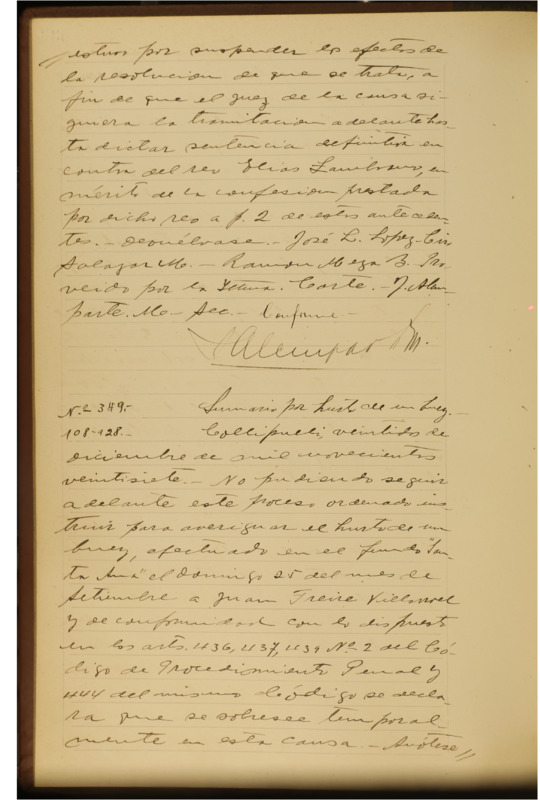 estuvo por suspender los efectos de
la resolucion de que se trata, a
fin de que el juez de la causa si-
guiera la tramitacion adelante has-
ta dictar sentencia definitiva en
contra del reo Elias Zambrano, en
mérito de la confesion prestada
por dicho reo a f. 2 de estos antece­den-
tes. - Devuélvase. - José L. Lopez - Ciro
Salazar M. - Ramon Meza B. Pro-
veido por la Iltma. Corte. - J. Alem-
parte. Mo - Sec. - Conforme -
Alemparte M.
N.º 349.- Sumario por hurto de un buey. -
108-928.- Collipulli, veintidos de
Diciembre de mil novecientos
veintisiete. - No pudiendo seguir
adelante este proceso ordenado ins-
truir para averiguar el hurto de un
buey, afectuado en el fundo "San-
ta Ana" el Domingo 25 del mes de
Setiembre a Juan Freire Villarroel
y de conformidad con lo dispuesto
en los arts. 436, 437, 439 Nº 2 del Có-
digo de Procedimiento Penal y
444 del mismo Código se decla-
ra que se sobresee temporal-
mente en esta causa. - Anótese